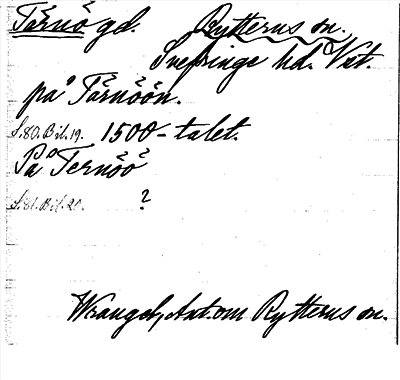 Tärnö gd. Rytterns sn.
Snefringe hd. Vstm.
på Tärnöön.
S.80. Bil. 19. 1500-talet.
På Ternöö
S.81. Bil. 20. ?
Wrangel, Ant. om Rytterns sn.